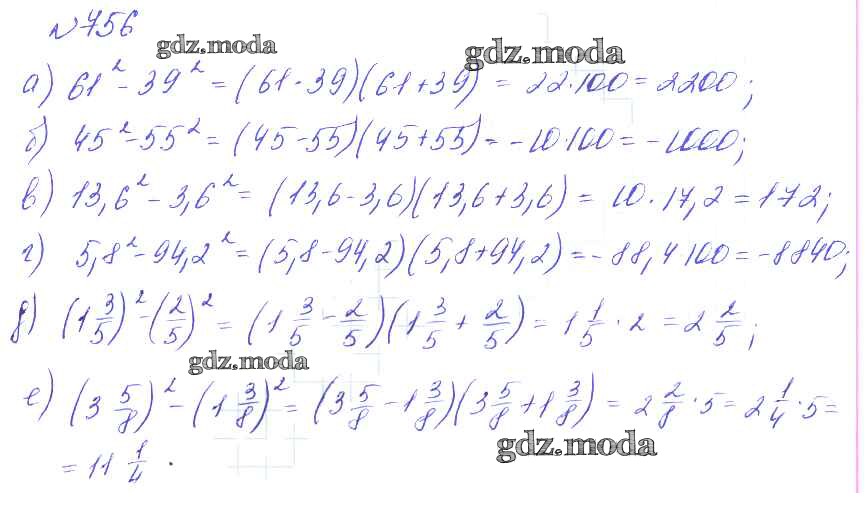 №756
gdz.moda gdz.moda
а) 61² - 39² = (61 - 39)(61 + 39) = 22·100 = 2200;
б) 45² - 55² = (45 - 55)(45 + 55) = -10·100 = -1000;
в) 13,6² - 3,6² = (13,6 - 3,6)(13,6 + 3,6) = 10·17,2 = 172;
г) 5,8² - 94,2² = (5,8 - 94,2)(5,8 + 94,2) = -88,4 100 = -8840;
д) (1 3/5)² - (2/5)² = (1 3/5 - 2/5)(1 3/5 + 2/5) = 1 1/5 · 2 = 2 2/5;
gdz.moda
е) (3 5/8)² - (1 3/8)² = (3 5/8 - 1 3/8)(3 5/8 + 1 3/8) = 2 2/8 · 5 = 2 1/4 · 5 =
gdz.moda
= 11 1/4.